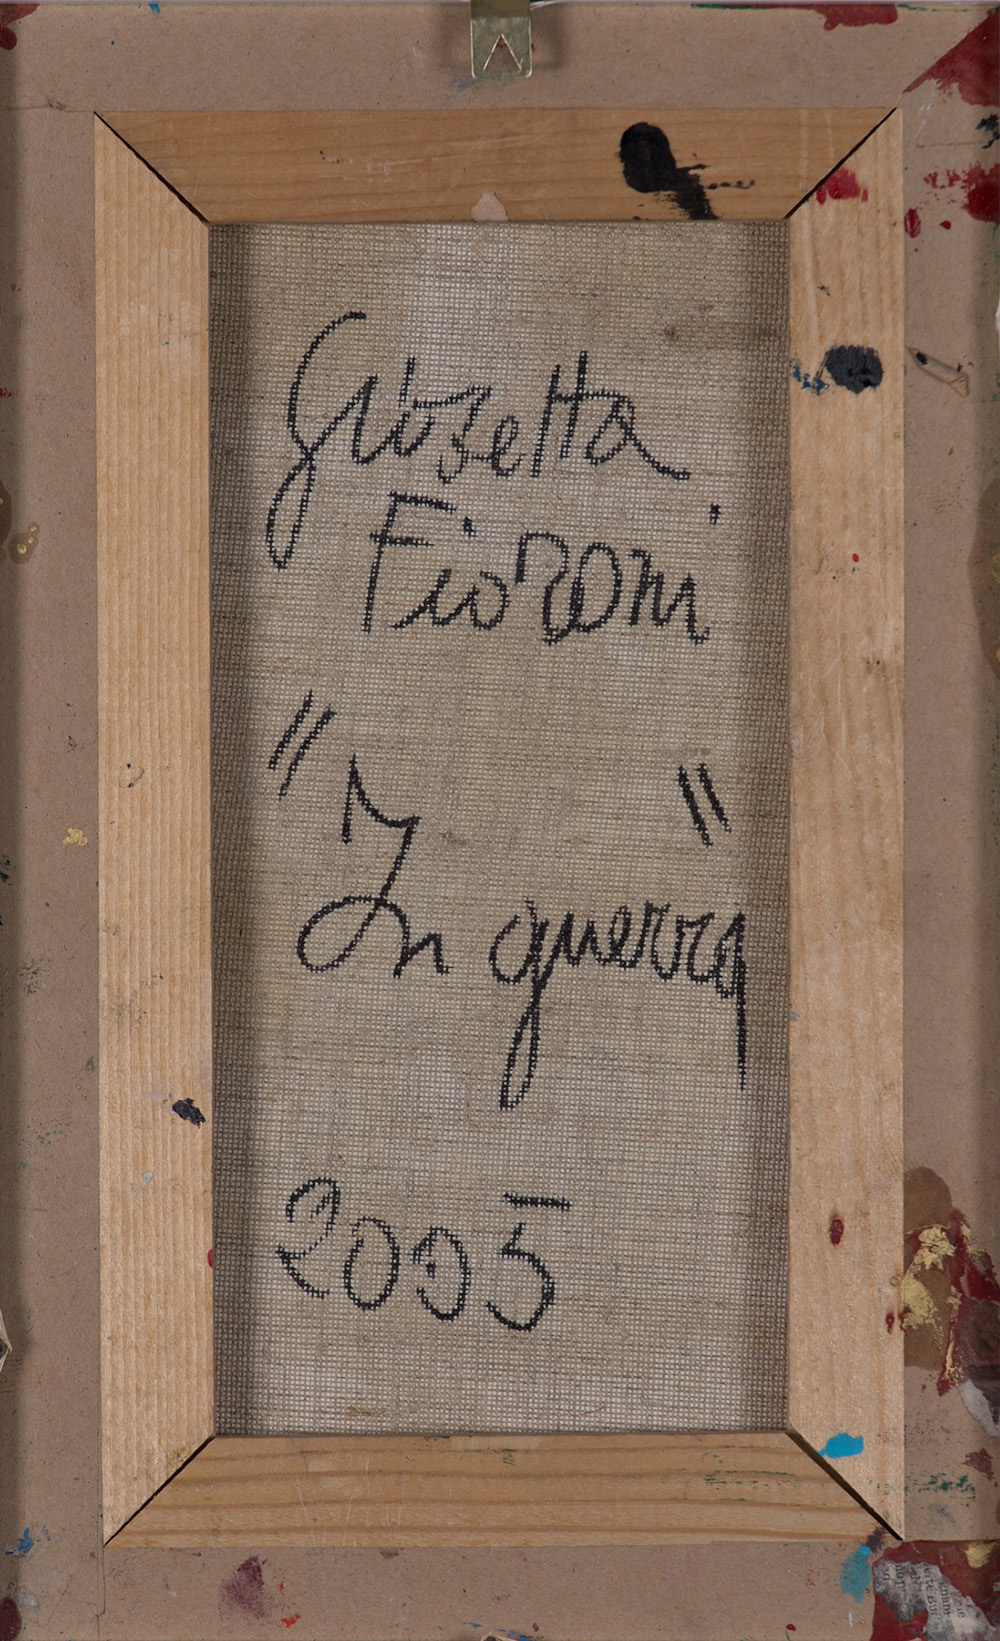 Giosetta
Fioroni
"In guerra"
2005